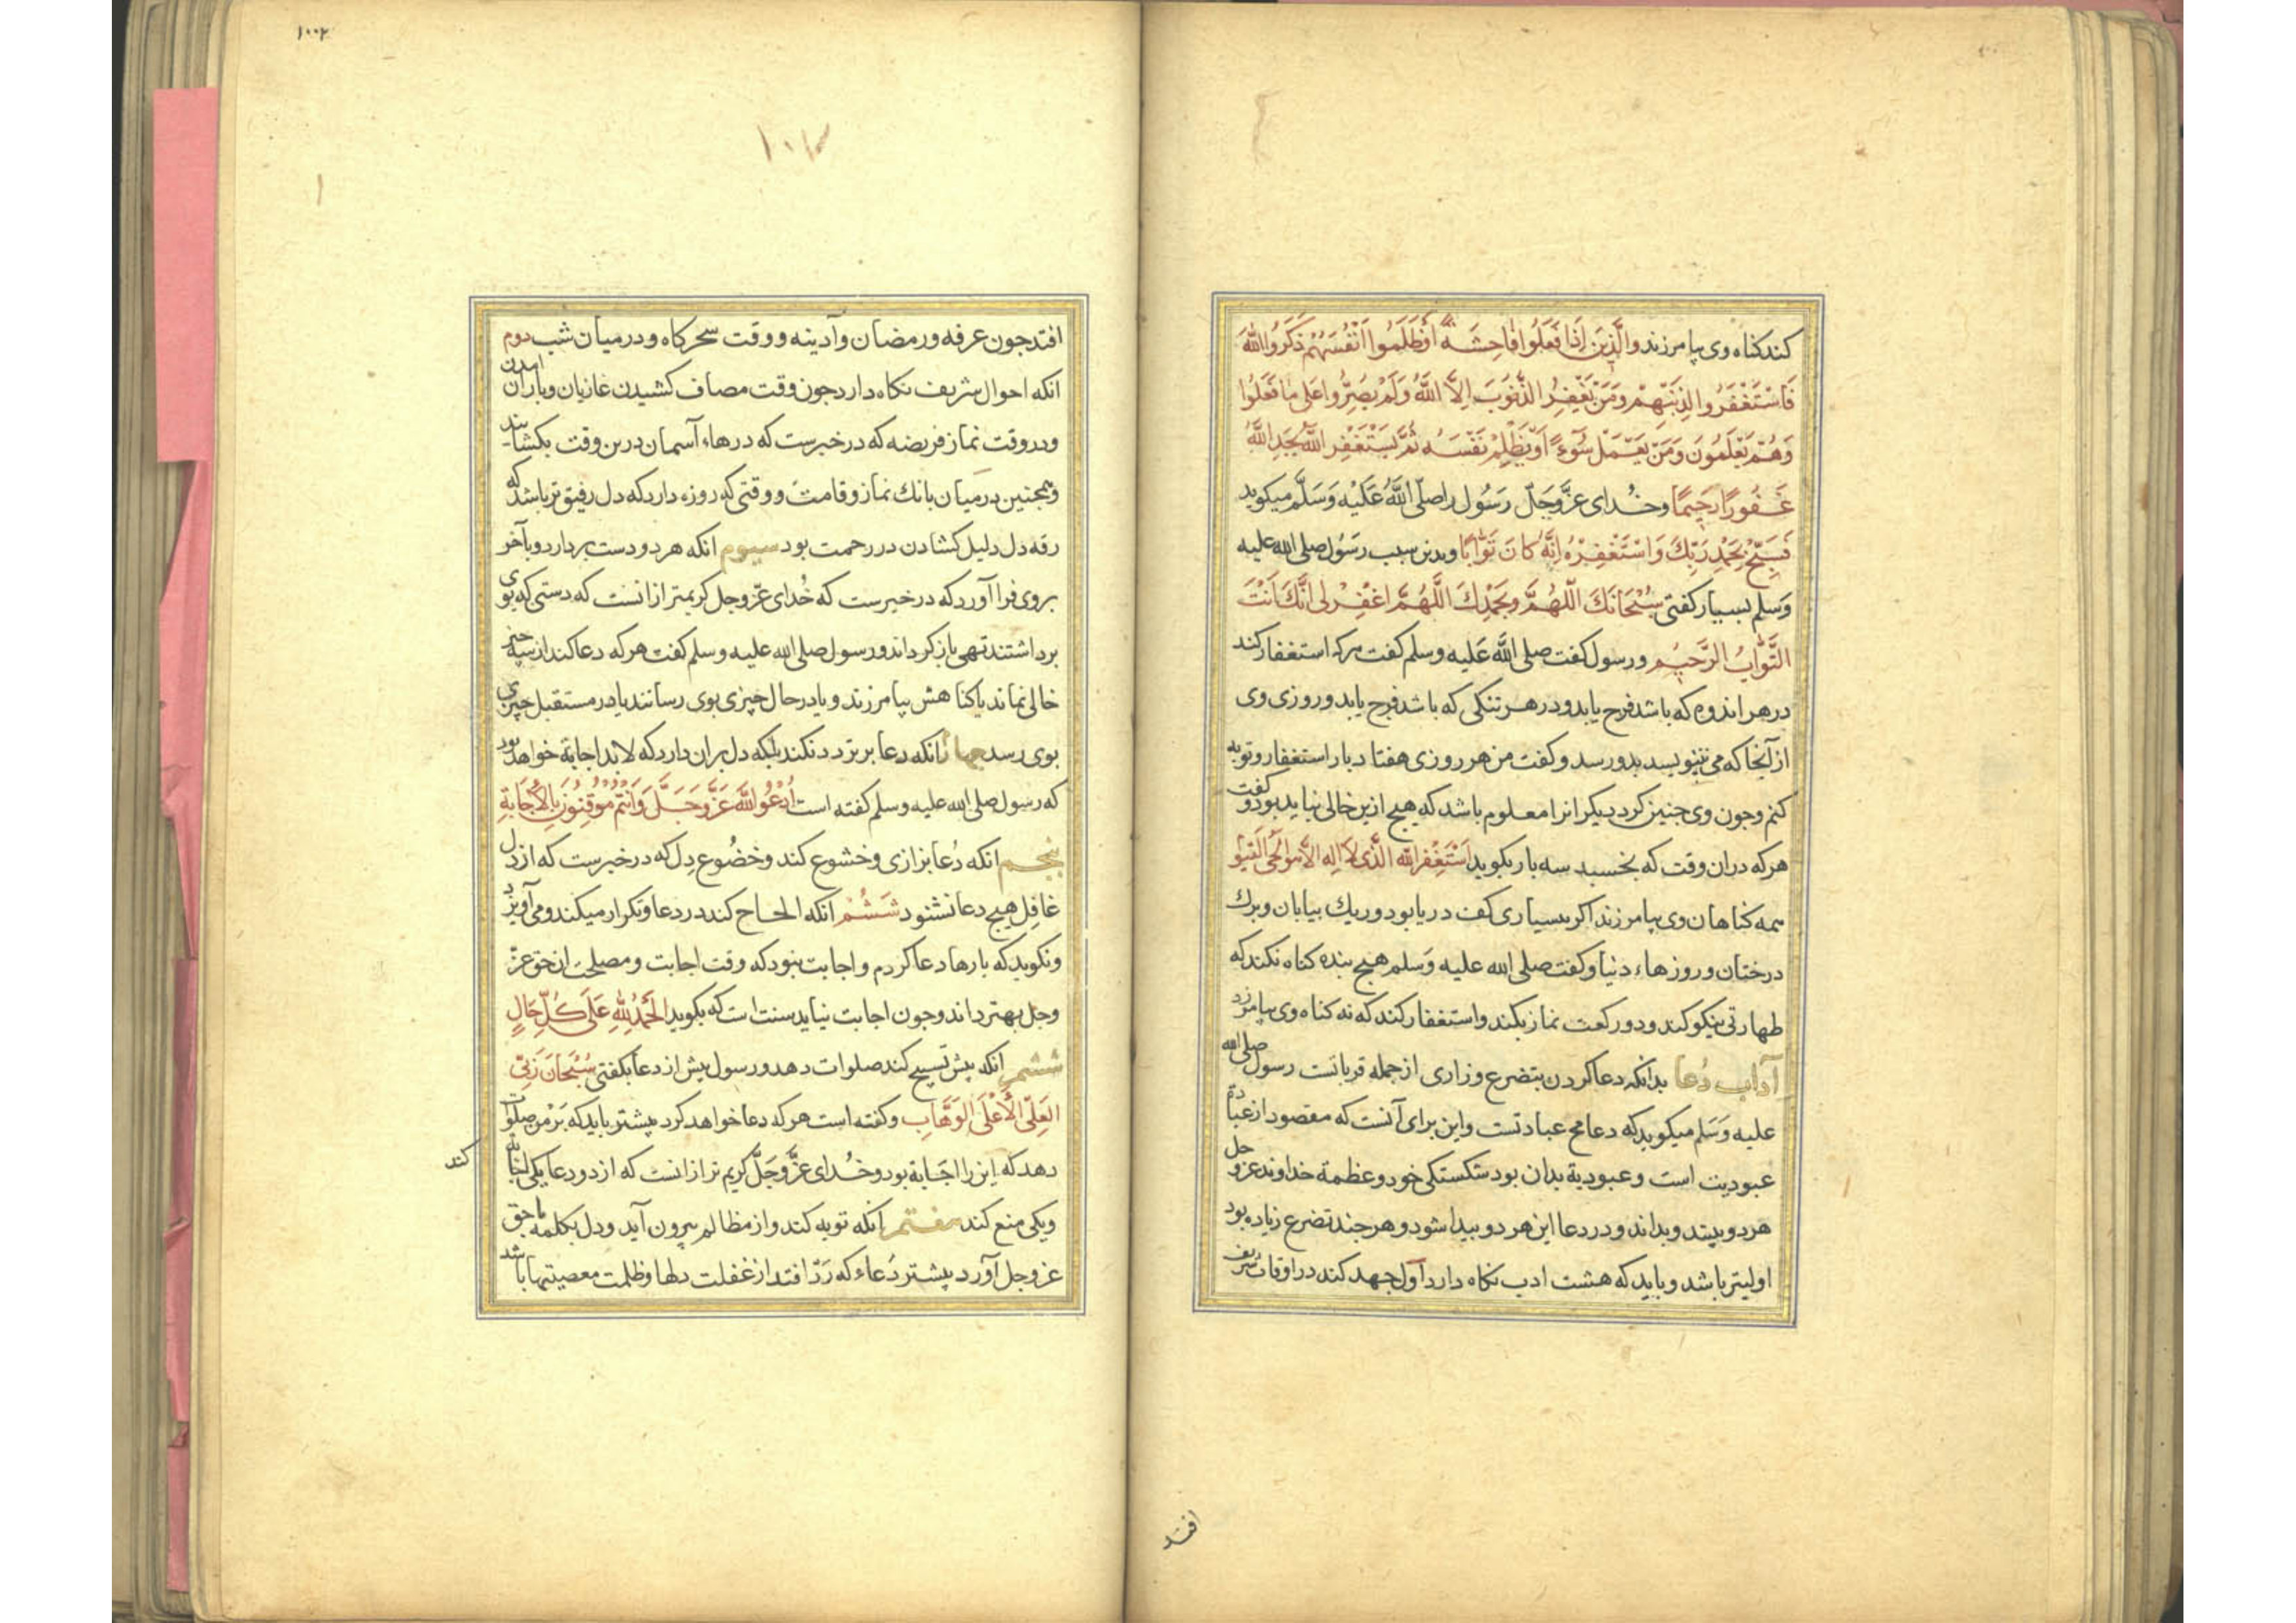 کند کناه وی بیامرزند والَّذِینَ إِذَا فَعَلُوا فَاحِشَةً أَوْ ظَلَمُوا أَنْفُسَهُمْ ذَکَرُوا اللهَ
فَاسْتَغْفَرُوا لِذُنُوبِهِمْ وَمَنْ یَغْفِرُ الذُّنُوبَ اِلَّا اللَّهُ وَلَمْ یُصِرُّوا عَلَی مَا فَعَلُوا
وَهُمْ یَعْلَمُونَ وَمَنْ یَعْمَلْ سُوءً أَوْ یَظْلِمْ نَفْسَهُ ثُمَّ یَسْتَغْفِرِ اللَّهَ یَجِدِ اللَّهَ
غَفُورًا رَحِیمًا وخُدای عزَّوجَلّ رَسُول را صلّی اللَّهُ عَلَیْه وَسَلَّم میکوید
فَسَبِّحْ بِحَمْدِ رَبِّكَ وَاسْتَغْفِرْهُ إِنَّهُ کَانَ تَوَّابًا وبدین سبب رَسُول صلی الله علیه
وَسلم بسیار کفتی سُبْحَانَكَ اللَّهُمَّ وبِحَمْدِكَ اللَّهُمَّ اغْفِرْ لِی اِنَّكَ اَنْتَ
التَّوَّابُ الرَّحِیْم ورسول کفت صلی اللَّه عَلیه وسلم کفت هرکه استغفار کند
در هر اندوه که باشد فرح یابد ودر هر تنکی که باشد فرج یابد وروزی وی
از آنجا که می نیویسد بدو رسد وکفت من هر روزی هفتاد بار استغفار وتوبه
کنم وجون وی جنین کرد دیکرانرا معلوم باشد که هیج ازین خالی نیاید بود وکفت
هرکه دران وقت که بخسبد سه بار بکوید اَسْتَغْفِرُ الله الَّذی لا اِله الا هو الحی القیو
همه کناهان وی بیامرزند اکر بسیاری کف دریا بود وریك بیابان وبرك
درختان وروزهاء دنیا وکفت صلی الله علیه وَسلم هیج بنده کناه نکند که
طهارتی نیکو کند ودو رکعت نماز بکند واستغفار کند که نه کناه وی بیامرزد
آداب دُعا بدانکه دعا کردن بتضرع وزاری از جمله قرباتست رسول صلی الله
علیه وَسَلم میکوید که دعا مخ عبادتست واین برای آنست که مقصود از عبادة
عبودیت است وعبودیة بدان بود شکستکی خود وعظمة خداوند عزو جل
هر دو ببیند وبداند ودر دعا این هر دو بیدا شود وهر جند تضرع زیاده بود
اولیتر باشد وباید که هشت ادب نکاه دارد اَول جهد کند در اوقات شریف
افتد
١٠٠٢
١٠٣
افتد جون عرفه ورمضان وآدینه ووقت سحرکاه ودر میان شب دوم
انکه احوال شریف نکاه دارد جون وقت مصاف کشیدن غازیان وباران امدن
ودر وقت نماز فریضه که در خبرست که درهاء آسمان درین وقت بکشایند
وهمجنین در میان بانك نماز وقامت ووقتی که روزه دارد که دل رقیق تر باشد که
رقه دل دلیل کشادن در رحمت بود سیوم انکه هر دو دست بردارد وبآخر
بروی فرا آورد که در خبرست که خُدای عزّوجل کریمتر ازانست که دستی که بوی
برداشتند تهی بازکرداند ورسول صلی الله علیه وسلم کفت هر که دعا کند از سه جیز
خالی نماند یا کناهش بیامرزند ویا در حال جیزی بوی رسانند یا در مستقبل جیزی
بوی رسد جهارم انکه دعا بر تردد نکند بلکه دل بران دارد که لابد اجابة خواهد بود
که رسول صلی الله علیه وسلم کفته است اُدْعُوا اللهَ عَزَّ وَجَلَّ وَاَنْتُمْ مُوْقِنُونَ بِالْاِجَابَةِ
پنجم انکه دُعا بزاری وخشوع کند وخضُوع دِل که در خبرست که از دل
غافِل هیج دعا نشنود ششُم انکه الحاح کند در دعا وتکرار میکند ومی آویزد
ونکوید که بارها دعا کردم واجابت نبود که وقت اجابت ومصلحت ان حق عزّ
وجل بهتر داند وجون اجابت نیاید سنت است که بکوید الْحَمْدُ لِلّٰهِ عَلَی کُلِّ حَالٍ
ششم انکه پیش تسبیح کند صلوات دهد ورسول پیش از دعا بکفتی سُبْحَانَ رَبِّی
العَلِیِّ الْاَعْلَی الوَهَّابِ وکفته است هر که دعا خواهد کرد پیشتر باید که بَر من صلوات
دهد که این را اجَابة بود وخُدای عزَّوجَلَّ کریم تر ازانست که از دو دعا یکی اجابة کند
ویکی منع کند هفتم انکه توبه کند واز مظالم بیرون آید ودل بکلمه با حق
عزوجل آورد پیشتر دُعاء که رَدّ افتد از غفلت دلها وظلمت معصیتها باشد